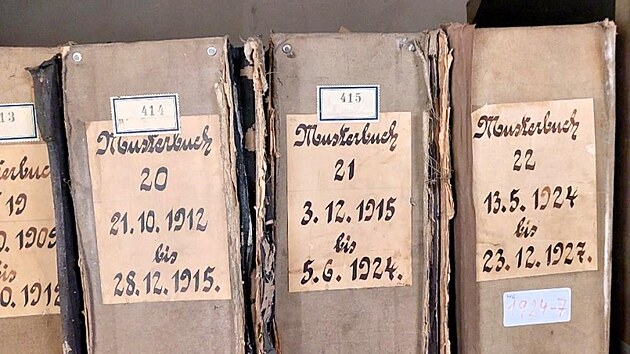 13
Musterbuch
19
0. 1909
bis
0. 1912
414
Musterbuch
20
21. 10. 1912
bis
28. 12. 1915.
415
Musterbuch
21
3. 12. 1915
bis
5. 6. 1924.
Musterbuch
22
13. 5. 1924
bis
23. 12. 1927.
1924-7